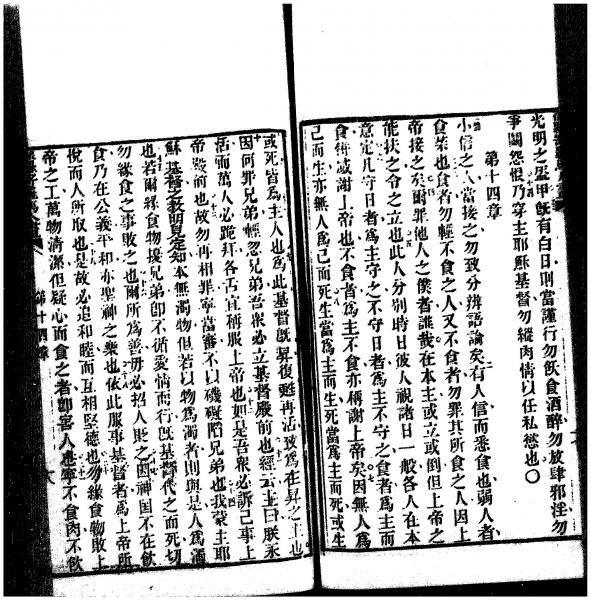 光明之盔甲旣有白日則當謹行勿飲食酒醉勿放肆邪淫勿
爭鬬怨恨乃穿主耶穌基督勿縱肉情以任私慾也
第十四章
小信之人當接之勿致分辨語論矣有人信而悉食也弱人者
食菜也食者勿輕不食之人又不食者勿罪其所食之人因上
帝接之矣爾罪他人之僕者誰哉在本主或立或倒但上帝之
能扶之令之立也此人分別時日彼人視諸日一般各人在本
意定見守日者爲主守之不守日者爲主不守之食者爲主而
食俾感謝上帝也不食者爲主不食亦稱謝上帝矣因無人爲
己而生亦無人爲己而死生當爲主而生死當爲主而死或生
或死皆爲主人也爲此基督旣死復甦再活致爲在昇之主也
因何罪兄弟輕忽兄弟吾衆必立基督殿前也經云主曰朕永
活而萬人必跪拜各舌宜稱服上帝也如是吾衆必訴己事上
帝殿前也故勿再相罪寧當審不以磯礙陷兄弟也我蒙主耶
穌基督之教明見定知本無濁物但若以物爲濁者則與是人爲濁
也若爾緣食物擾兄弟卽不循愛情而行旣基督代之而死切
勿緣食之事敗之也爾所爲善毋必招人貶之因神国不在飲
食乃在公義平和亦聖神之樂也依此服事基督者爲上帝所
悅而人所取也是故必追和睦而互相堅德也勿緣食物敗上
帝之工萬物清潔但疑心而食之者卽害人也寧不食肉不飲